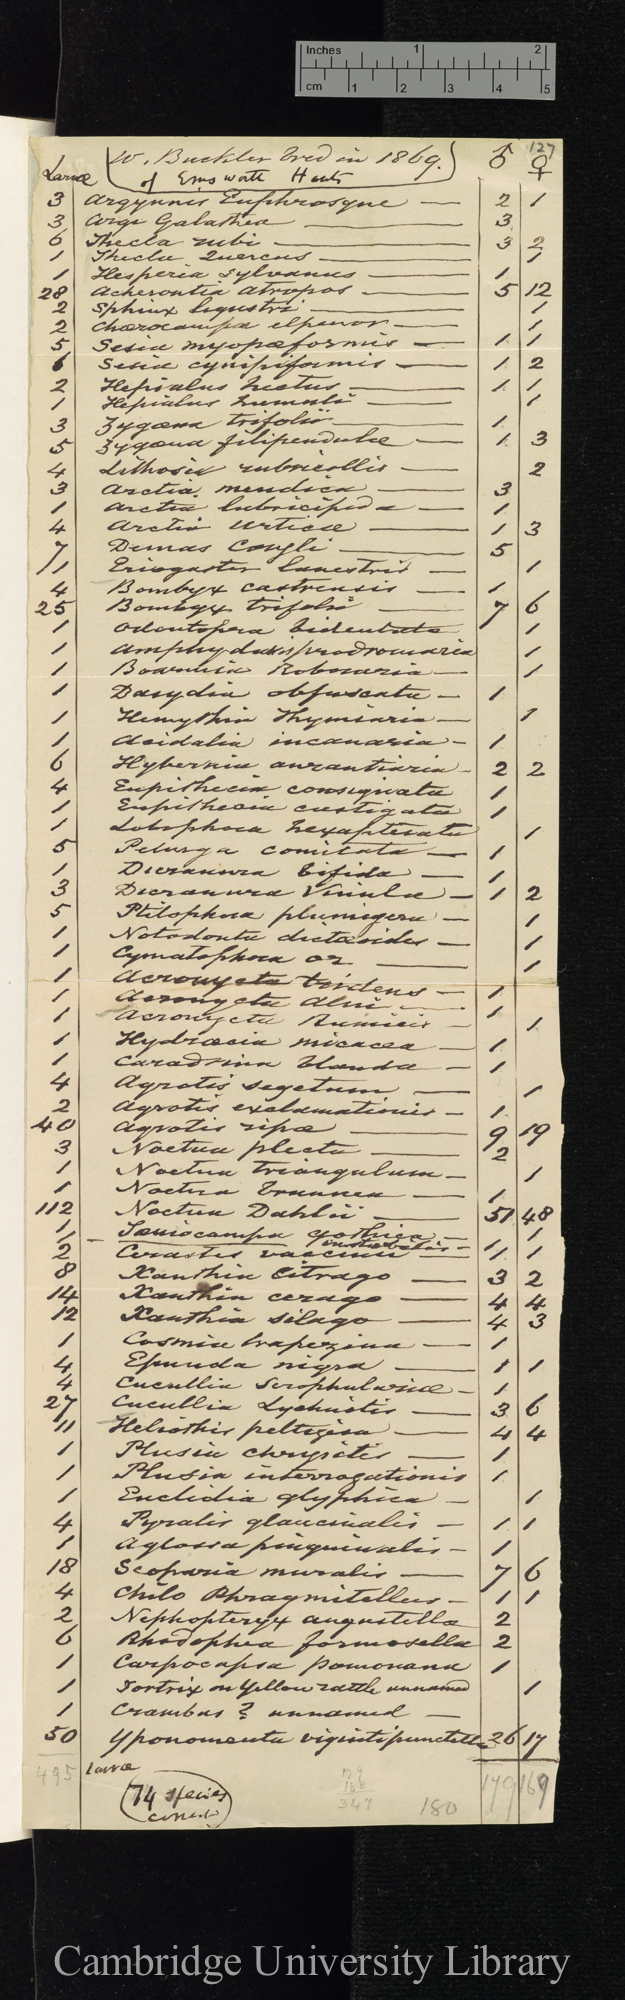 Inches 1 2
cm 1 2 3 4 5
127
W. Buckler bred in 1869.
Larvæ of Emsworth Hants ♂ ♀
3 Argynnis Euphrosyne — 2 1
3 Arge Galathea — 3
6 Thecla rubi — 3 2
1 Thecla Quercus — 1
1 Hesperia Sylvanus — 1
28 Acherontia atropos — 5 12
2 Sphinx ligustri — 1
2 Chœrocampa elpenor — 1
5 Sesia myopæformis — 1 1
6 Sesia cynipiformis — 1 2
2 Hepialus hectus — 1 1
1 Hepialus humuli — 1
3 Zygæna trifolii — 1
5 Zygæna filipendulæ — 1 3
4 Lithosia rubricollis — 2
3 Arctia mendica — 3
1 Arctia lubricipeda — 1
4 Arctia urticæ — 1 3
7 Demas Coryli — 5
1 Eriogaster lanestris — 1
4 Bombyx castrensis — 1
25 Bombyx trifolii — 7 6
1 Odontopera bidentata 1
1 Amphydasis prodromaria 1
1 Boarmia Roboraria — 1
1 Dasydia obfuscata — 1
1 Hemythia Thymiaria — 1
1 Acidalia incanaria — 1
6 Hybernia aurantiaria — 2 2
4 Eupithecia consignata 1
1 Eupithecia castigata 1
1 Lobophora hexapterata 1
5 Pelurga comitata — 1
1 Dicranura bifida — 1
3 Dicranura Vinulæ — 1 2
5 Ptilophora plumigera — 1
1 Notodonta dictæoides — 1
1 Cymatophora or — 1
1 Acronycta tridens — 1
1 Acronycta Alni — 1
1 Acronycta Rumicis — 1
1 Hydræcia micacea — 1
1 Caradrina blanda — 1
4 Agrotis segetum — 1
2 Agrotis exclamationis — 1
40 Agrotis ripæ — 9 19
3 Noctua plecta — 2
1 Noctua triangulum — 1
1 Noctua brunnea — 1
112 Noctua Dahlii — 51 48
1 Tæniocampa gothica — 1
1 — instabilis — 1
2 Cerastis vaccinii — 1 1
8 Xanthia citrago — 3 2
14 Xanthia cerago — 4 4
12 Xanthia silago — 4 3
1 Cosmia trapezina — 1
4 Epunda nigra — 1 1
4 Cucullia Scrophulariæ — 1
27 Cucullia Lychnitis — 3 6
11 Heliothis peltigera — 4 4
1 Plusia chrysitis — 1
1 Plusia interrogationis 1
1 Euclidia glyphica — 1
4 Pyralis glaucinalis — 1 1
1 Aglossa pinguinalis — 1
18 Scoparia muralis — 7 6
4 Chilo Phragmitellus — 1 1
2 Nephopteryx angustella 2
6 Rhodophea formosella 2
1 Carpocapsa Pomonana 1
1 Tortrix on Yellow rattle unnamed 1
1 Crambus ? unnamed —
50 Yponomeuta vigintipunctella 26 17
495 Larvæ 179 169
347
180
74 species
correct
Cambridge University Library